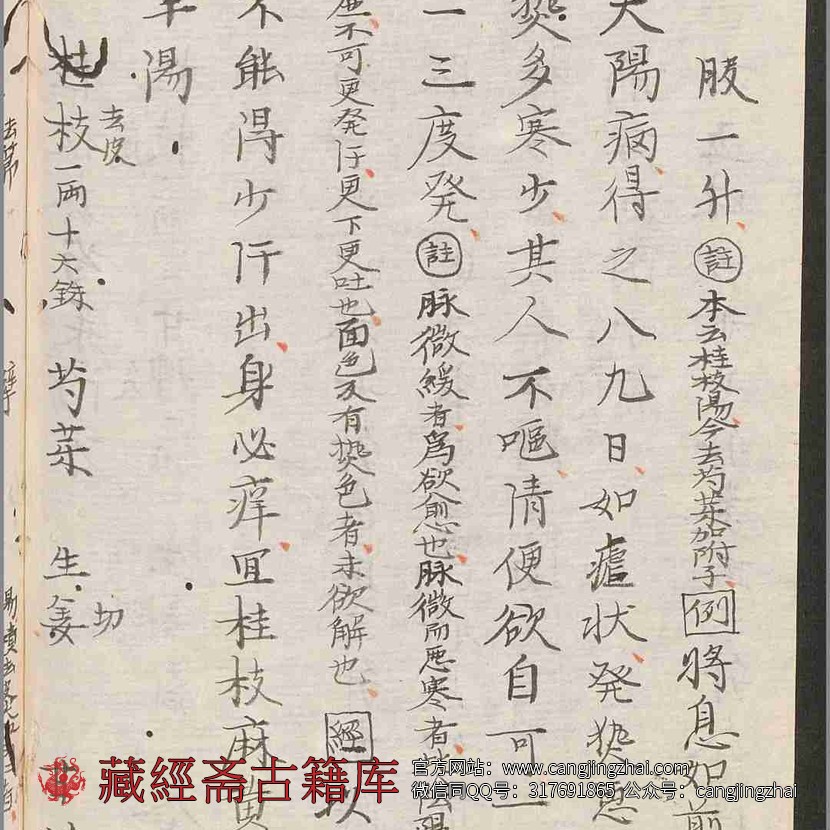 服一升註本云桂枝湯今去芍藥加附子例將息如前
太陽病得之八九日如瘧状発熱悪
熱多寒少其人不嘔清便欲自可一
三度発註脉微緩者為欲愈也脉微而悪寒者
不可更発汗更下更吐也面色反有热色者未欲解也經以
不能得少汗出身必痒宜桂枝麻黄
半湯
桂枝去皮一兩十六銖 芍藥 生姜切
藏經斋古籍库
官方网站：www.cangjingzhai.com
微信同QQ号：317691865 公众号：cangjingzhai